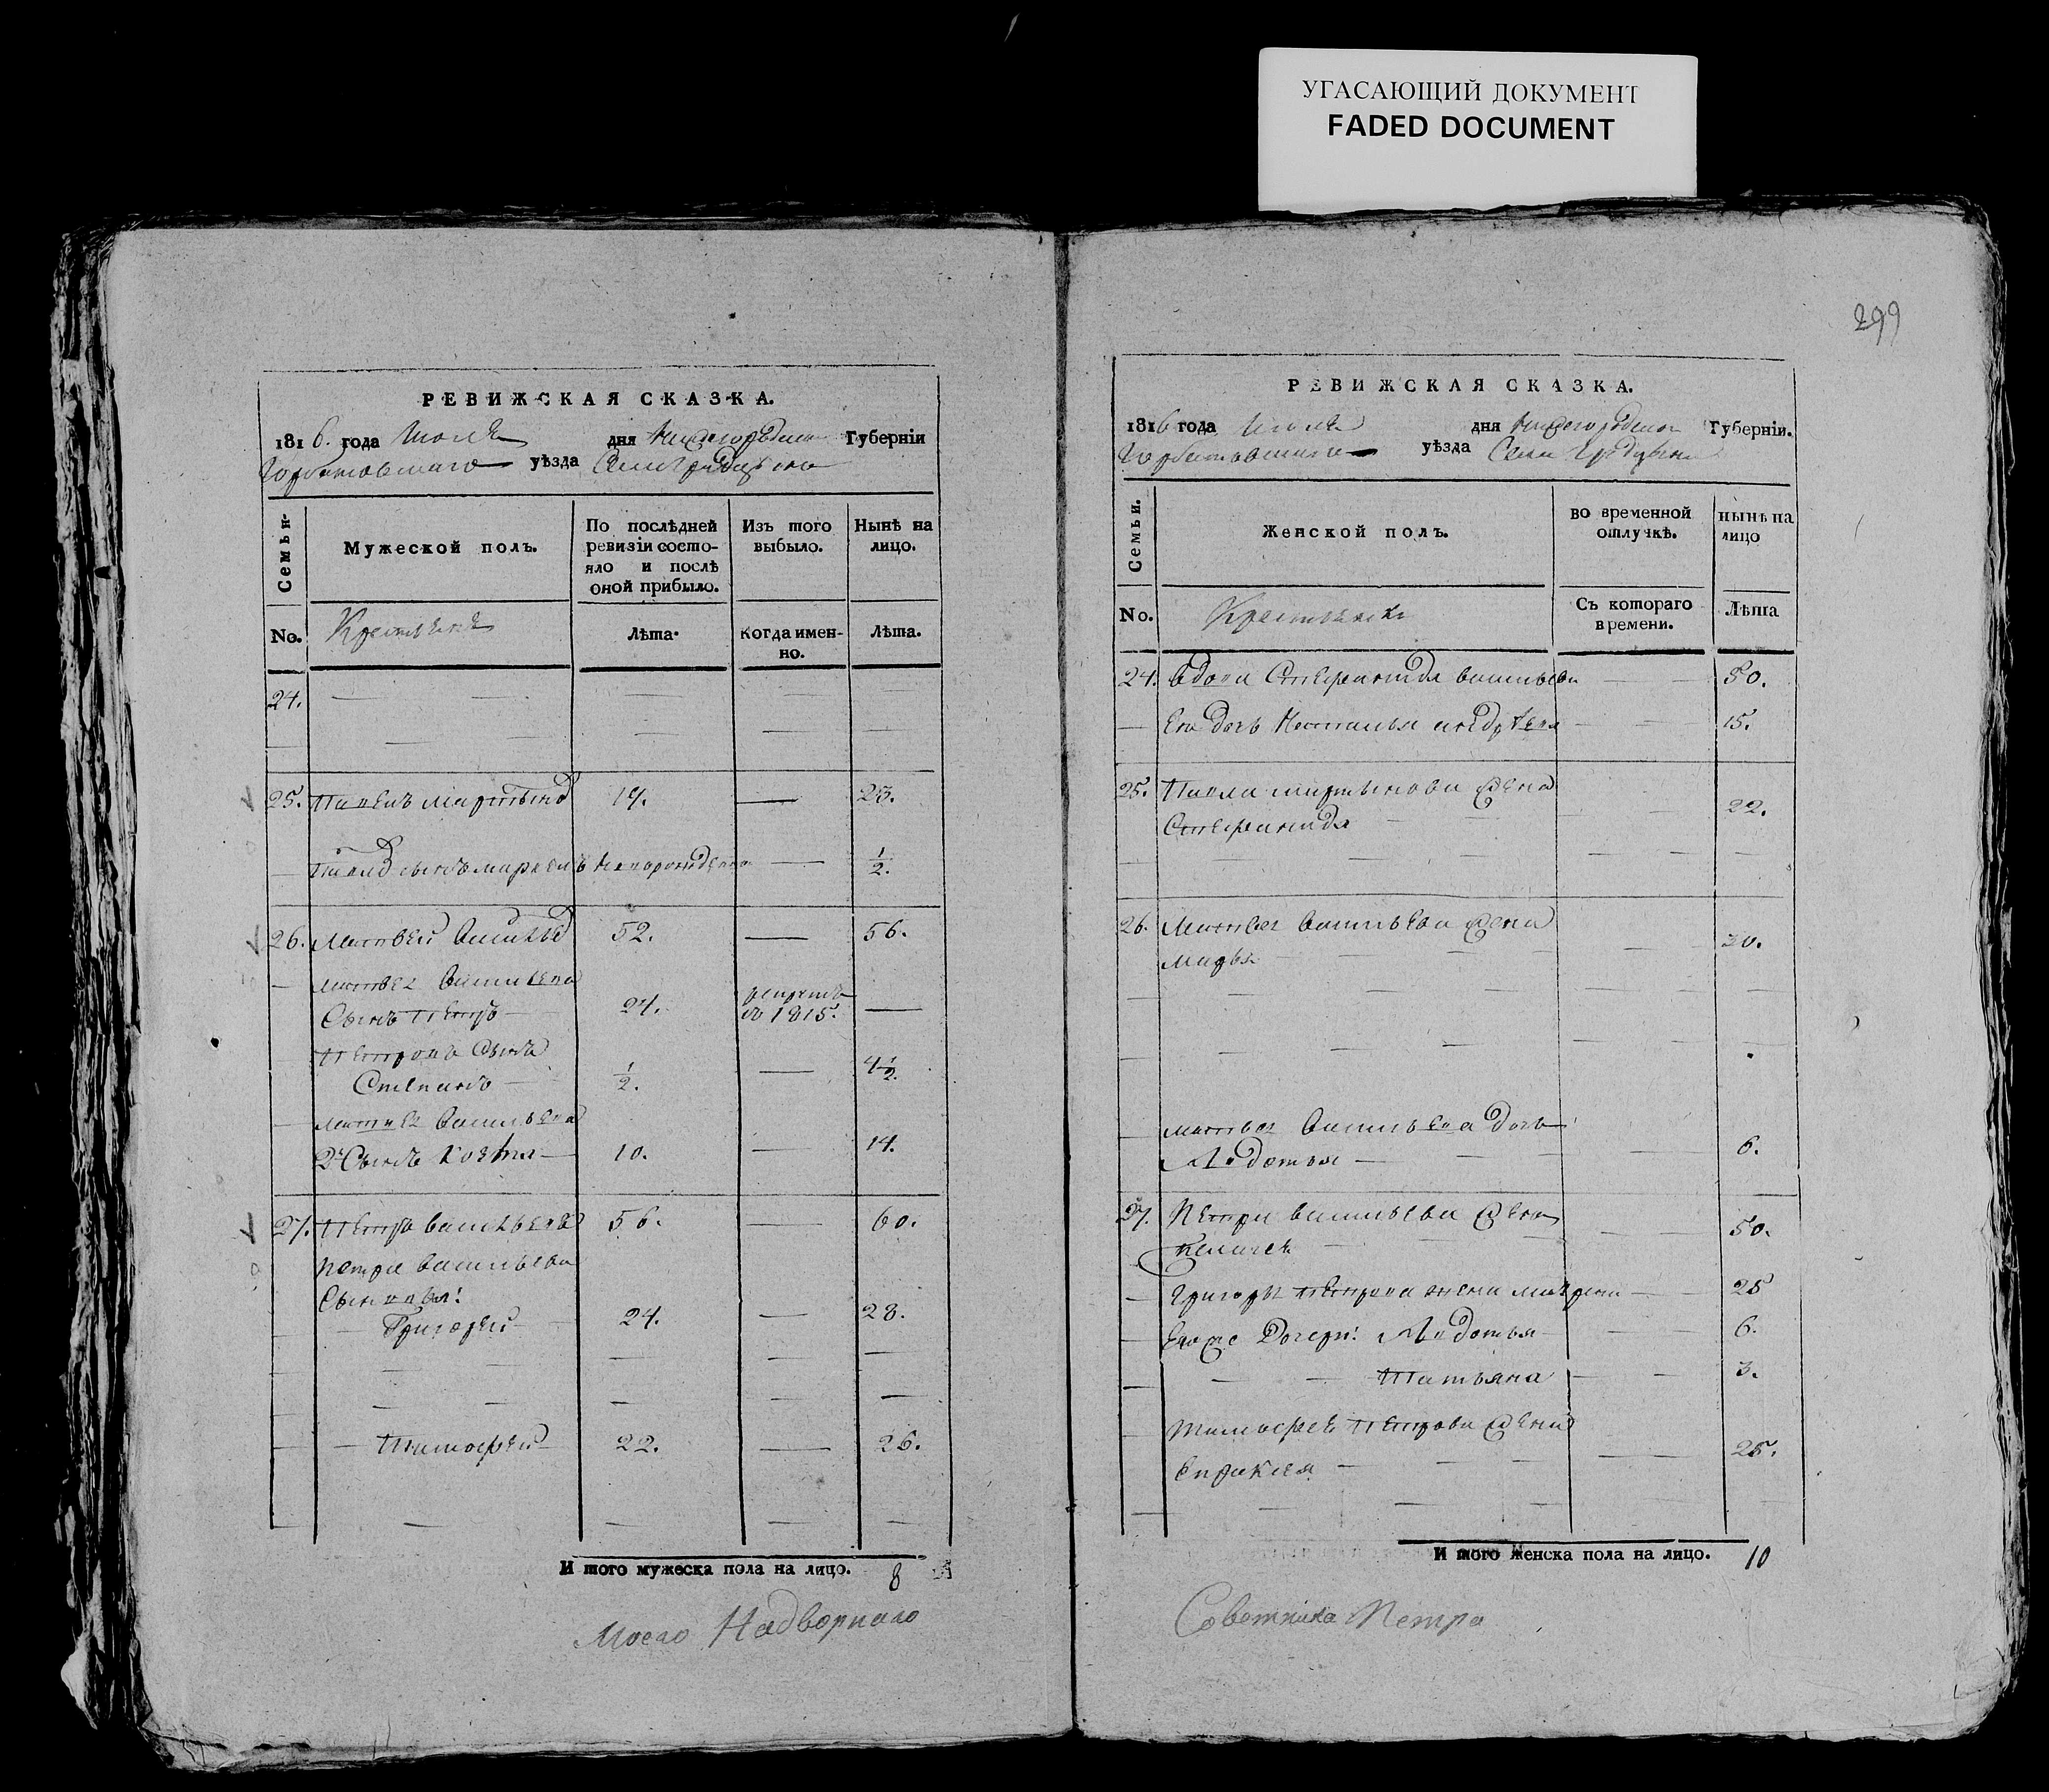 УГАСАЮЩИЙ ДОКУМЕНТ
FADED DOCUMENT
РЕВИЖСКАЯ СКАЗКА.
1816. года Июля дня Нижегородской Губерніи
Горбатовскаго уѣзда Села
Семьи.
Мужеской полъ.
По послѣдней ревизіи состо-
яло и послѣ
оной прибыло.
Изъ того
выбыло.
Нынѣ на
лицо.
No.
Крестьяне
Лѣта.
Когда имен-
но.
Лѣта.
24.
25. Павелъ Мартыновъ 19. 23.
Павловъ сынъ Маркелъ новорожденной 1/2.
26. Матвей Васильевъ 52. 56.
Матвея Васильева
Сынъ Петръ 24. въ 1815.
Петровъ Сынъ
Степанъ 1/2. 4 1/2.
Матвея Васильева
2й Сынъ Козма 10. 14.
27. Петръ Васильевъ 56. 60.
Петра Васильева
Сыновья:
Григорей 24. 28.
Тимофей 22. 26.
И того мужеска пола на лицо. 8
Моего Надворнаго
299
РЕВИЖСКАЯ СКАЗКА.
1816 года Июля дня Нижегородской Губерніи.
Горбатовскаго уѣзда Села
Семьи.
Женской полъ.
во временной
отлучкѣ.
нынѣ на
лицо
No.
Крестьянки
Съ котораго
времени.
Лѣта
24. вдова Степанида Васильева 50.
Ея дочь Наталья 15.
25. Павла Мартынова жена
Степанида 22.
26. Матвея Васильева жена
Марья 30.
Матвея Васильева дочь
Авдотья 6.
27. Петра Васильева жена
50.
Григорья Петрова жена Маврена 25
Евоже Дочери: Авдотья 6.
Татьяна 3.
Тимофея Петрова жена
Епраксея 25.
И того женска пола на лицо. 10
Советника Петра